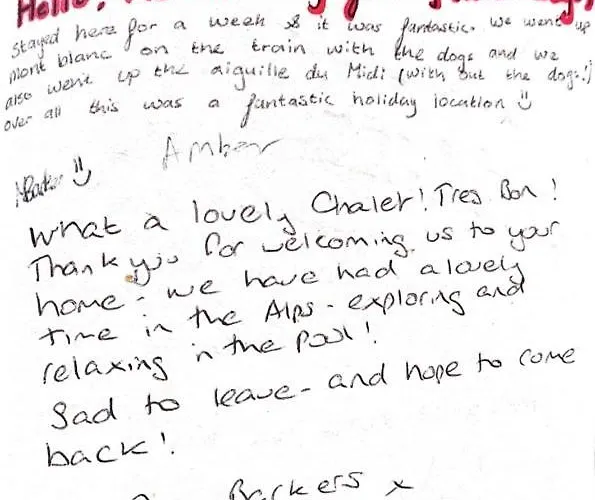 Hello!
Stayed here for a week & it was fantastic. We went up
mont blanc on the train with the dogs and we
also went up the aiguille du Midi (without the dogs!)
over all this was a fantastic holiday location
Amber
What a lovely Chalet! Tres Bon!
Thank you for welcoming us to your
home - we have had a lovely
time in the Alps - exploring and
relaxing in the Pool!
Sad to leave - and hope to come
back!
Barkers x